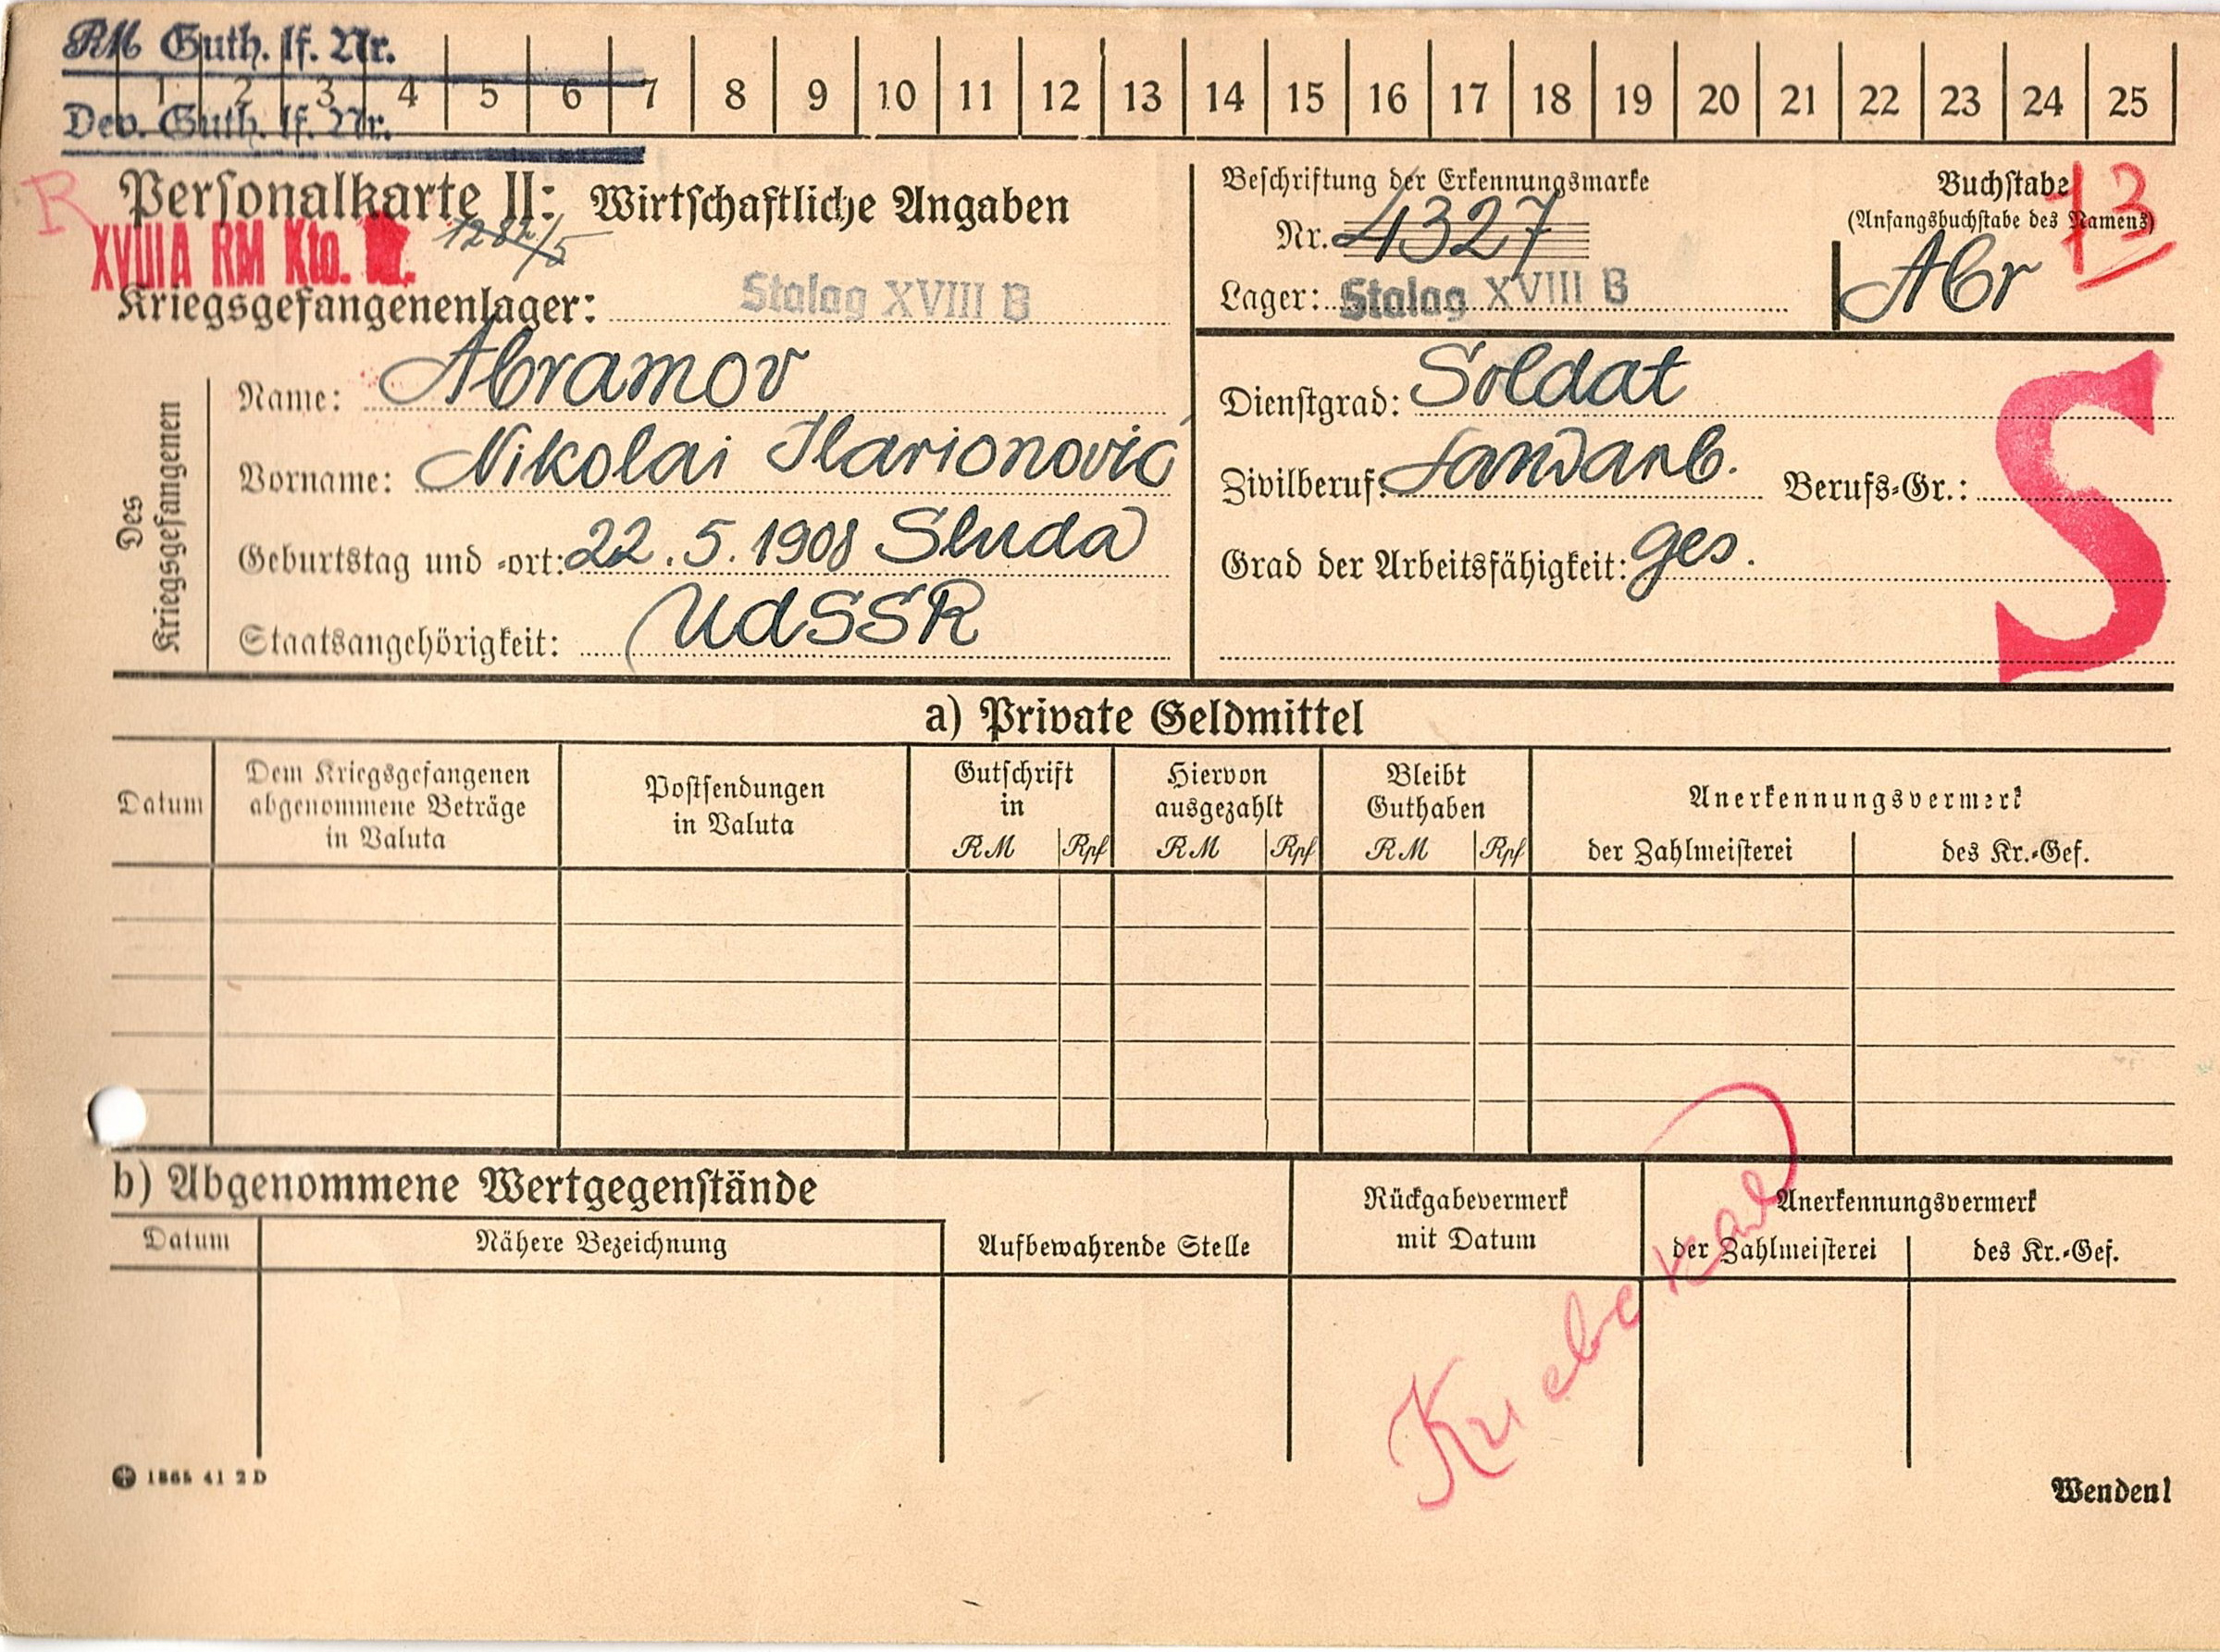 RM Guth. lf. Nr.
1 2 3 4 5 6 7 8 9 10 11 12 13 14 15 16 17 18 19 20 21 22 23 24 25
Dev. Guth. lf. Nr.
R
Personalkarte II: Wirtschaftliche Angaben
XVIII A RM Kto.
Kriegsgefangenenlager: Stalag XVIII B
Beschriftung der Erkennungsmarke
Nr. 4327
Lager: Stalag XVIII B
Buchstabe
(Anfangsbuchstabe des Namens)
Abr
13
Des Kriegsgefangenen
Name: Abramov
Vorname: Nikolai Ilarionović
Geburtstag und -ort: 22.5.1908 Sluda
Staatsangehörigkeit: UdSSR
Dienstgrad: Soldat
Zivilberuf: Landarb. Berufs-Gr.:
Grad der Arbeitsfähigkeit: ges.
S
a) Private Geldmittel
Datum
Dem Kriegsgefangenen
abgenommene Beträge
in Valuta
Postsendungen
in Valuta
Gutschrift
in
RM Rpf
Hiervon
ausgezahlt
RM Rpf
Bleibt
Guthaben
RM Rpf
Anerkennungsvermerk
der Zahlmeisterei des Kr.-Gef.
b) Abgenommene Wertgegenstände
Datum Nähere Bezeichnung
Aufbewahrende Stelle
Rückgabevermerk
mit Datum
Anerkennungsvermerk
der Zahlmeisterei des Kr.-Gef.
1865 41 2 D
Wenden!